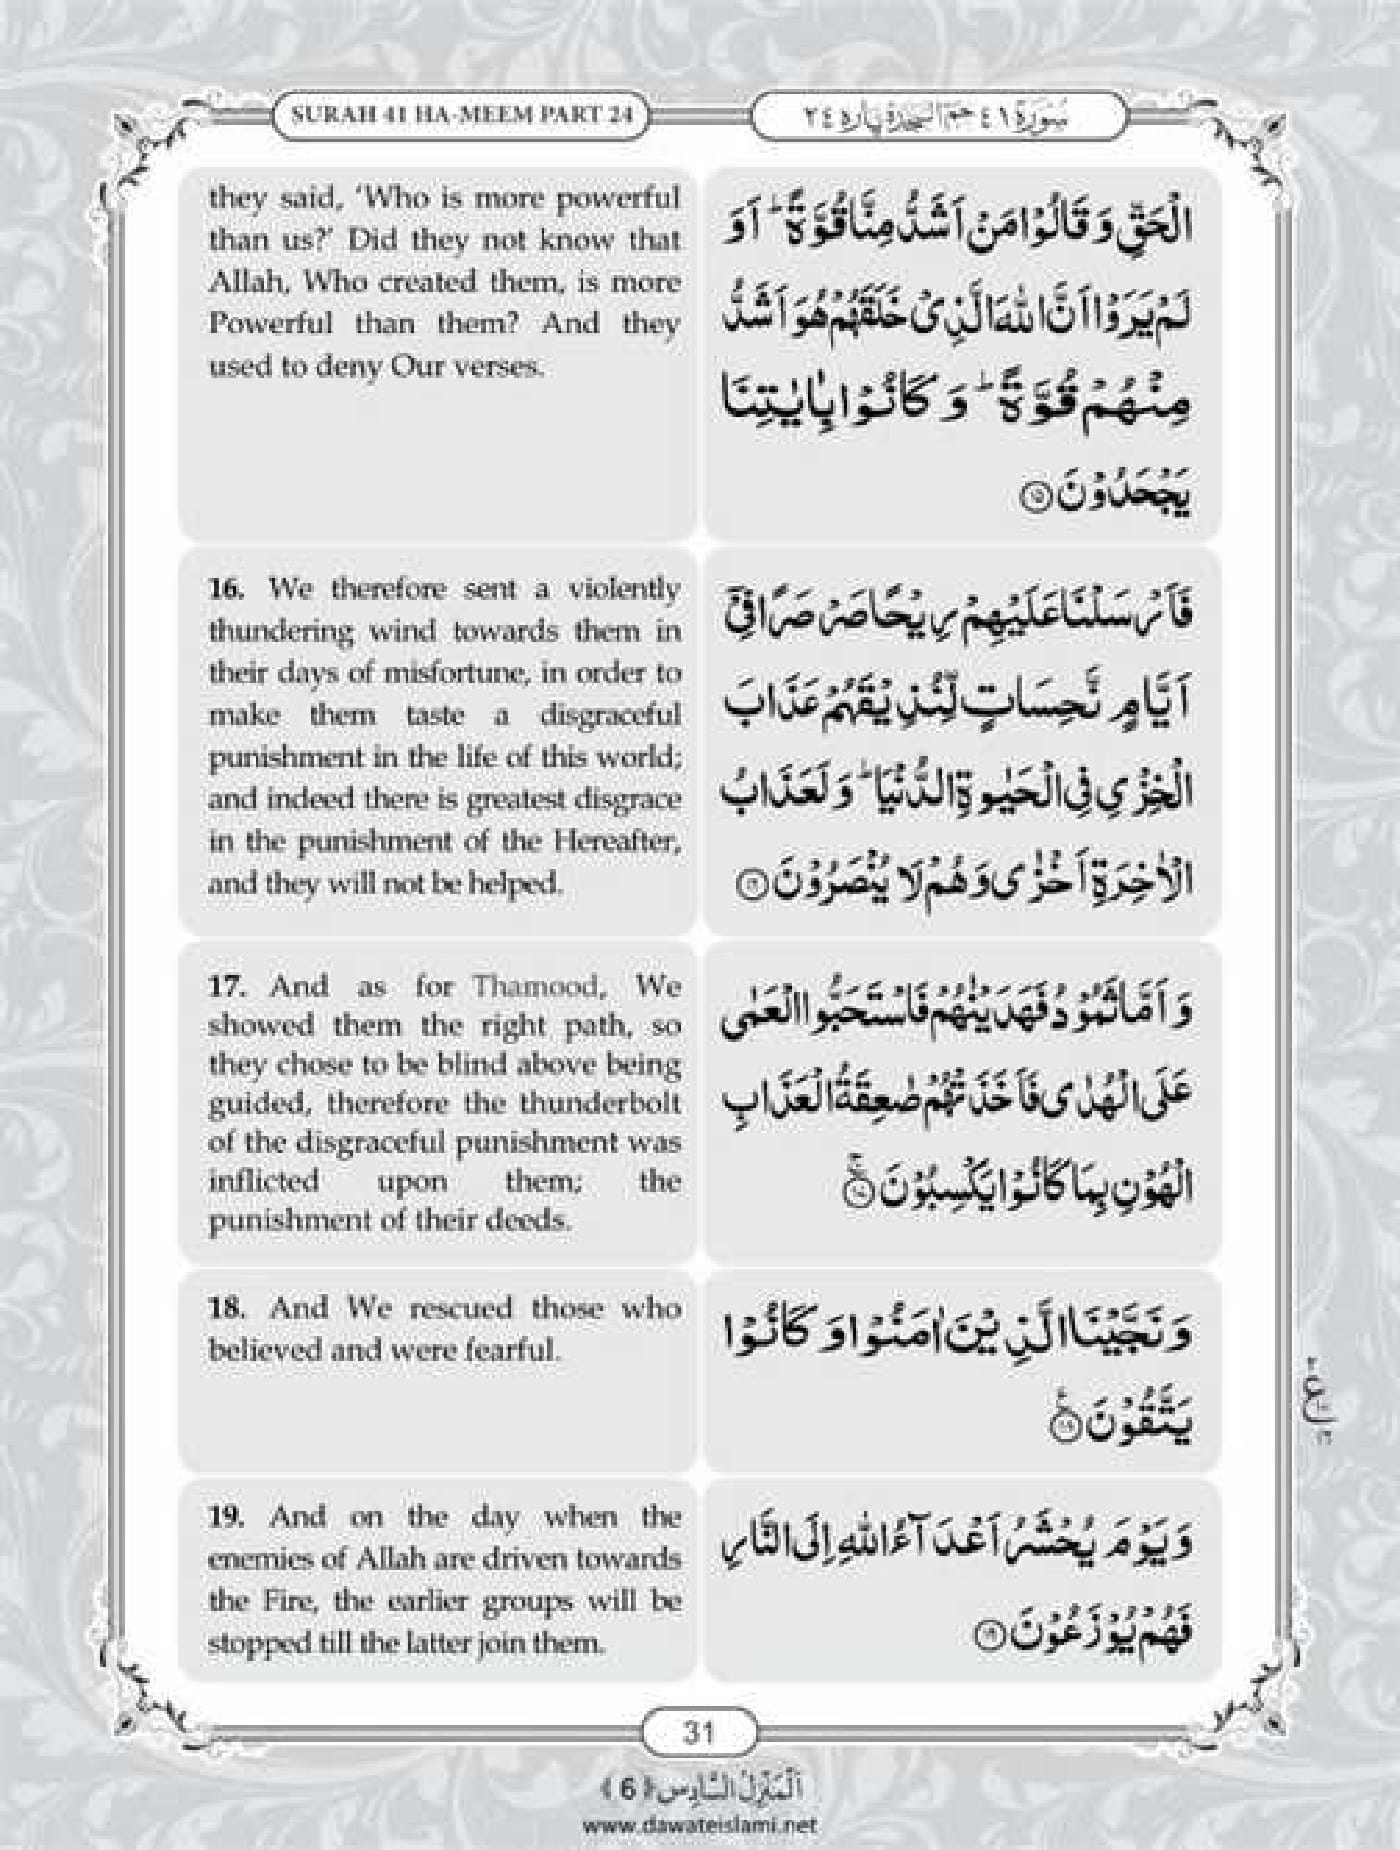 SURAH 41 HA-MEEM PART 24
سُوْرَةُ ٤١ حٰمٓ السَّجْدَة پاره ٢٤
they said, ‘Who is more powerful
than us?’ Did they not know that
Allah, Who created them, is more
Powerful than them? And they
used to deny Our verses.
الْحَقِّ وَ قَالُوْا مَنْ اَشَدُّ مِنَّا قُوَّةًؕ اَوَ
لَمْ یَرَوْا اَنَّ اللّٰهَ الَّذِیْ خَلَقَهُمْ هُوَ اَشَدُّ
مِنْهُمْ قُوَّةًؕ وَ كَانُوْا بِاٰیٰتِنَا
یَجْحَدُوْنَ ﴿۱۵﴾
16. We therefore sent a violently
thundering wind towards them in
their days of misfortune, in order to
make them taste a disgraceful
punishment in the life of this world;
and indeed there is greatest disgrace
in the punishment of the Hereafter,
and they will not be helped.
فَاَرْسَلْنَا عَلَیْهِمْ رِیْحًا صَرْصَرًا فِیْۤ
اَیَّامٍ نَّحِسَاتٍ لِّنُذِیْقَهُمْ عَذَابَ
الْخِزْیِ فِی الْحَیٰوةِ الدُّنْیَاؕ وَ لَعَذَابُ
الْاٰخِرَةِ اَخْزٰى وَ هُمْ لَا یُنْصَرُوْنَ ﴿۱۶﴾
17. And as for Thamood, We
showed them the right path, so
they chose to be blind above being
guided, therefore the thunderbolt
of the disgraceful punishment was
inflicted upon them; the
punishment of their deeds.
وَ اَمَّا ثَمُوْدُ فَهَدَیْنٰهُمْ فَاسْتَحَبُّوا الْعَمٰى
عَلَى الْهُدٰى فَاَخَذَتْهُمْ صٰعِقَةُ الْعَذَابِ
الْهُوْنِ بِمَا كَانُوْا یَكْسِبُوْنَۚ ﴿۱۷﴾
18. And We rescued those who
believed and were fearful.
وَ نَجَّیْنَا الَّذِیْنَ اٰمَنُوْا وَ كَانُوْا
یَتَّقُوْنَ ﴿۱۸﴾
19. And on the day when the
enemies of Allah are driven towards
the Fire, the earlier groups will be
stopped till the latter join them.
وَ یَوْمَ یُحْشَرُ اَعْدَآءُ اللّٰهِ اِلَى النَّارِ
فَهُمْ یُوْزَعُوْنَ ﴿۱۹﴾
31
اَلْمَنْزِلُ السَّادِس ﴿6﴾
www.dawateislami.net